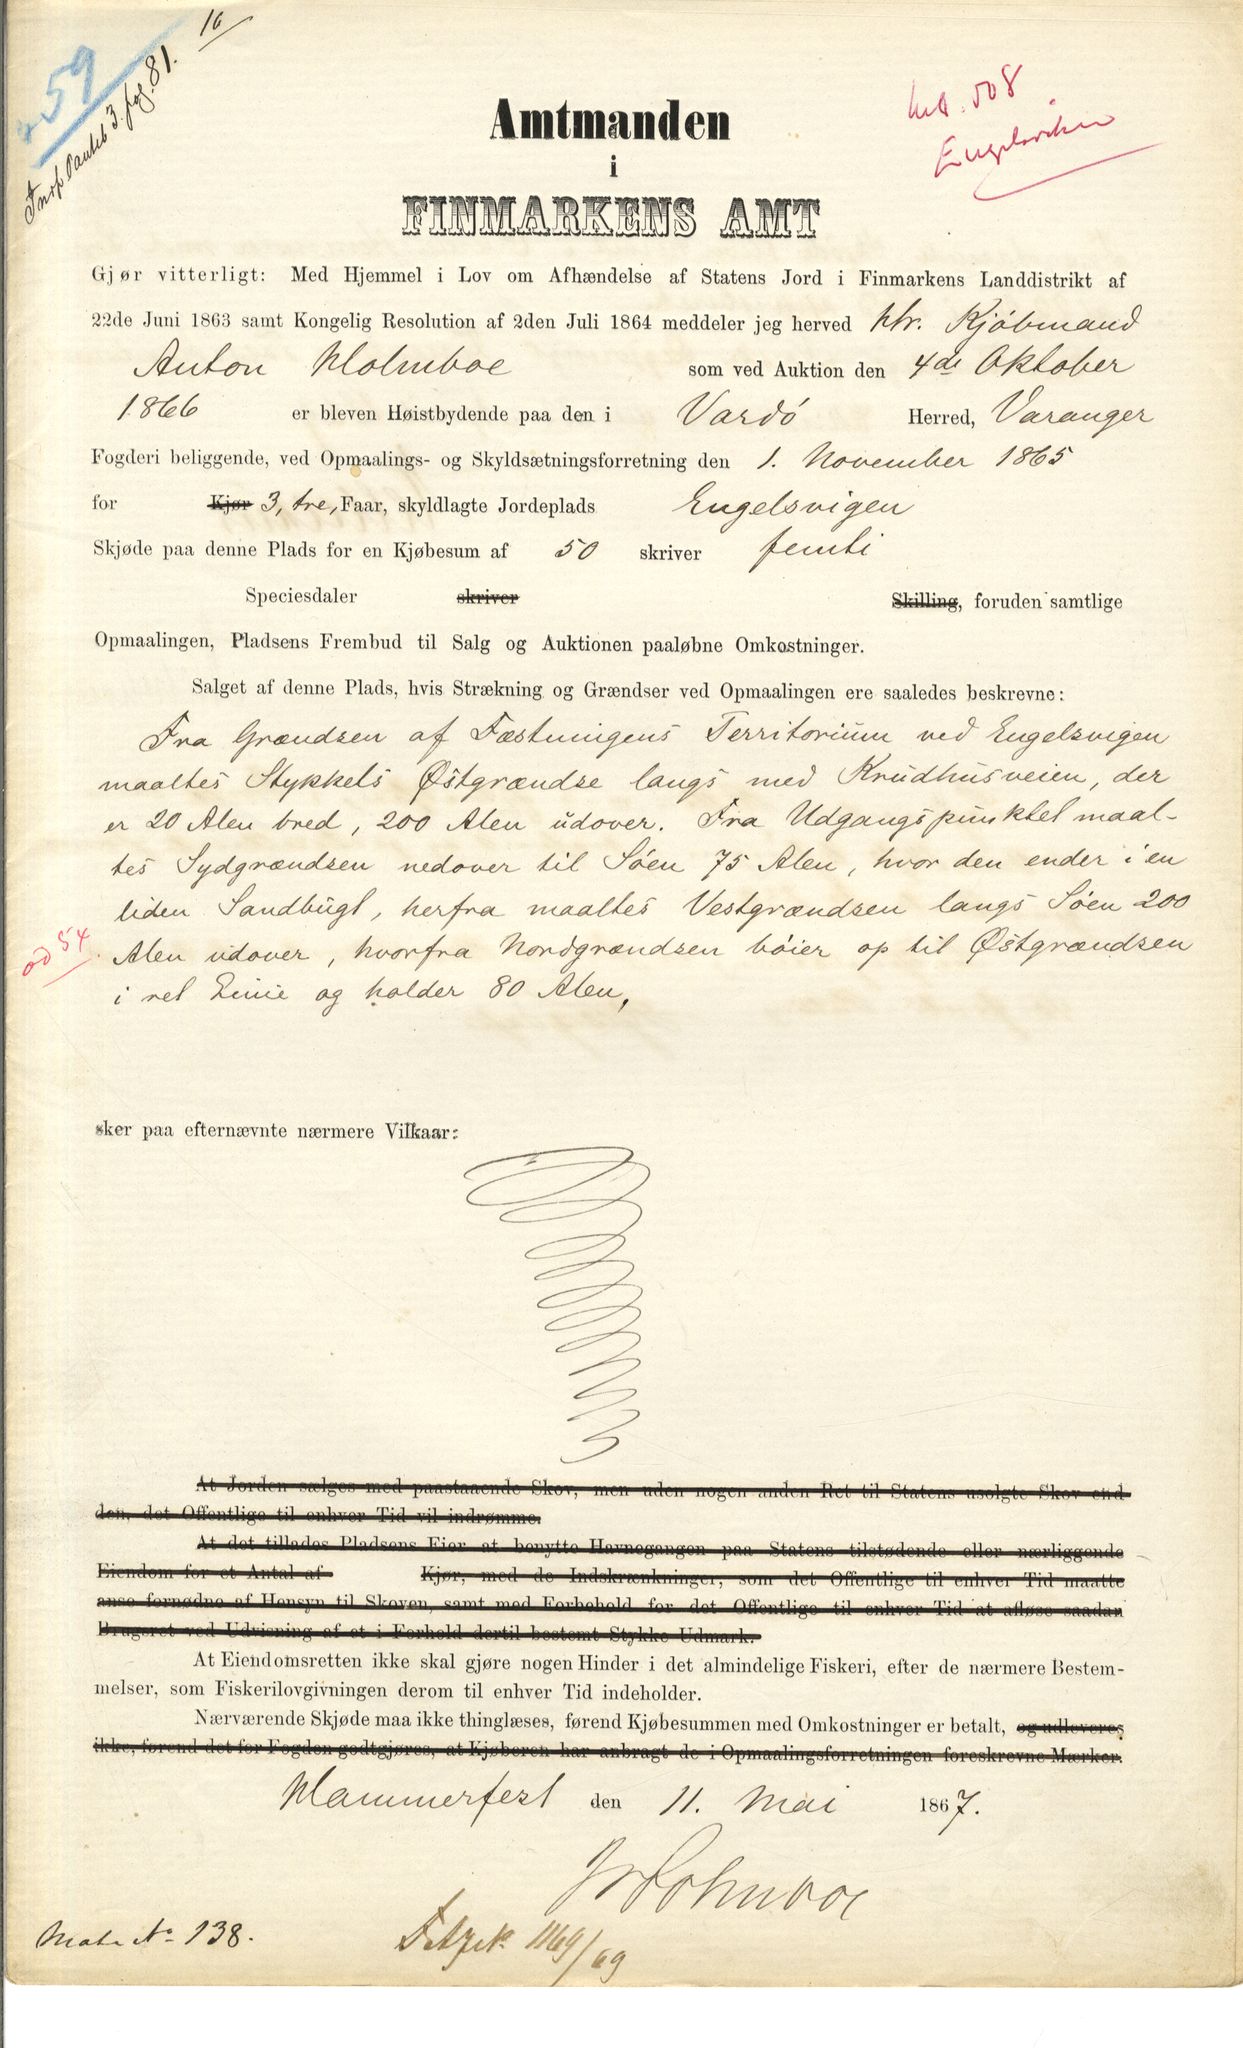 16
59
Pantb 3. fol. 81.
Amtmanden
i
FINMARKENS AMT
508
Engelsviken
Gjør vitterligt: Med Hjemmel i Lov om Afhændelse af Statens Jord i Finmarkens Landdistrikt af
22de Juni 1863 samt Kongelig Resolution af 2den Juli 1864 meddeler jeg herved Hr. Kjöbmand
Anton Holmboe som ved Auktion den 4de Oktober
1866 er bleven Høistbydende paa den i Vardö Herred, Varanger
Fogderi beliggende, ved Opmaalings- og Skyldsætningsforretning den 1. November 1865
for Kjør 3, tre, Faar, skyldlagte Jordeplads Engelsvigen
Skjøde paa denne Plads for en Kjøbesum af 50 skriver femti
Speciesdaler skriver Skilling, foruden samtlige
Opmaalingen, Pladsens Frembud til Salg og Auktionen paaløbne Omkostninger.
Salget af denne Plads, hvis Strækning og Grændser ved Opmaalingen ere saaledes beskrevne:
Fra Grændsen af Fæstningens Territorium ved Engelsvigen
maaltes Stykkets Østgrændse langs med Krudhusveien, der
er 20 Alen bred, 200 Alen udover. Fra Udgangspunktet maal-
tes Sydgrændsen nedover til Söen 75 Alen, hvor den ender i en
liden Sandbugt, herfra maaltes Vestgrændsen langs Söen 200
od 54
Alen udover, hvorfra Nordgrændsen böier op til Østgrændsen
i ret Linie og holder 80 Alen,
sker paa efternævnte nærmere Vilkaar:
At Jorden sælges med paastaaende Skov, men uden nogen anden Ret til Statens usolgte Skov end
den, det Offentlige til enhver Tid vil indrømme.
At det tillades Pladsens Eier at benytte Havnegangen paa Statens tilstødende eller nærliggende
Eiendom for et Antal af Kjør, med de Indskrænkninger, som det Offentlige til enhver Tid maatte
anse fornødne af Hensyn til Skoven, samt med Forbehold for det Offentlige til enhver Tid at afløse saadan
Brugsret ved Udvisning af et i Forhold dertil bestemt Stykke Udmark.
At Eiendomsretten ikke skal gjøre nogen Hinder i det almindelige Fiskeri, efter de nærmere Bestem-
melser, som Fiskerilovgivningen derom til enhver Tid indeholder.
Nærværende Skjøde maa ikke thinglæses, førend Kjøbesummen med Omkostninger er betalt, og udleveres
ikke, førend det for Fogden godtgjøres, at Kjøberen har anbragt de i Opmaalingsforretningen foreskrevne Mærker.
Hammerfest den 11. Mai 1867.
Holmboe
Mat. No 138.
1169/69